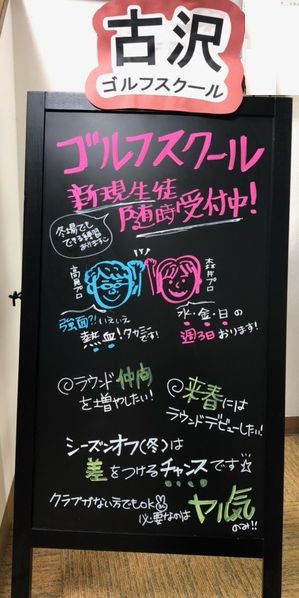 古沢
ゴルフスクール
ゴルフスクール
新規生徒
随時受付中!
冬場でも
できる練習
あります♪
高見プロ
森井プロ
強面?!いえいえ
熱血!タカミです!
水・金・日の
週3日おります!
ラウンド仲間
を増やしたい!
来春には
ラウンドデビューしたい!
シーズンオフ(冬)は
差をつけるチャンスです☆
クラブがない方でもOK
必要なのは
ヤル気
のみ!!